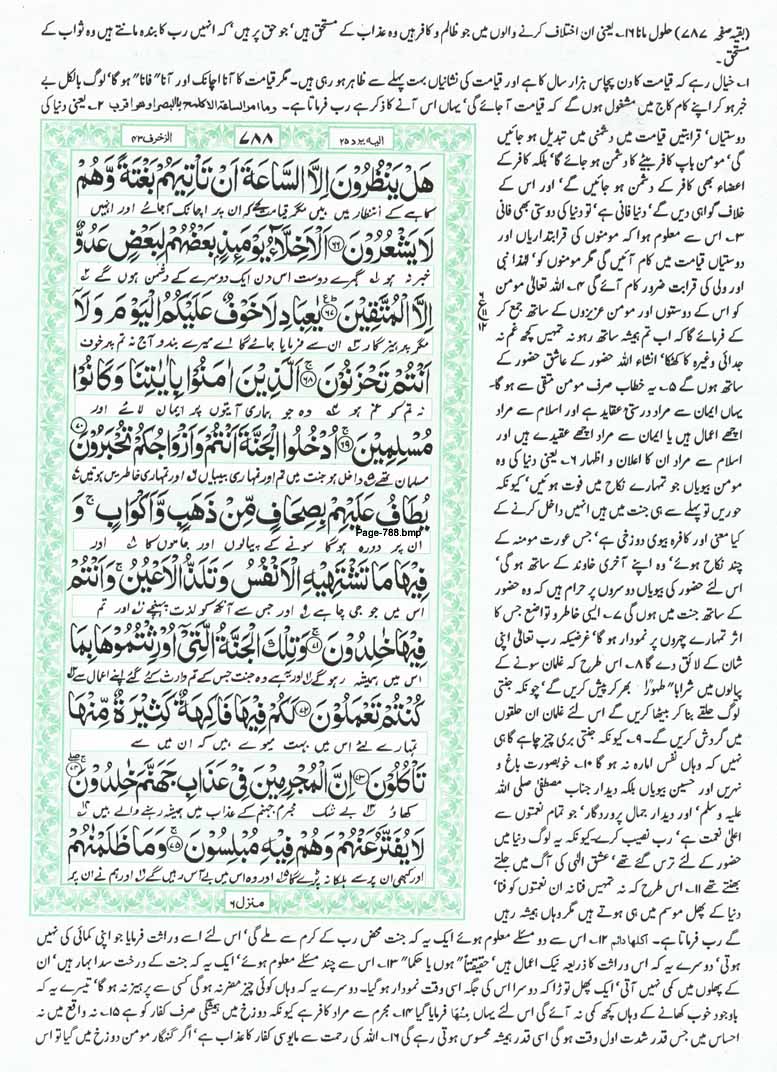 (بقیہ صفحہ ۷۸۷) حلول مانا ۱۶؎ یعنی ان اختلاف کرنے والوں میں جو ظالم و کافر ہیں وہ عذاب کے مستحق ہیں‘ جو حق پر ہیں‘ کہ انہیں رب کا بندہ مانتے ہیں وہ ثواب کے
مستحق۔
۱؎ خیال رہے کہ قیامت کا دن پچاس ہزار سال کا ہے اور قیامت کی نشانیاں بہت پہلے سے ظاہر ہو رہی ہیں۔ مگر قیامت کا آنا اچانک اور آنا" فانا" ہو گا‘ لوگ بالکل بے
خبر ہو کر اپنے کام کاج میں مشغول ہوں گے کہ قیامت آ جائے گی‘ یہاں اس آنے کا ذکر ہے رب فرماتا ہے۔ وما امر الساعۃ الا کلمح بالبصر او ھو اقرب ۲؎ یعنی دنیا کی
دوستیاں‘ قرابتیں قیامت میں دشمنی میں تبدیل ہو جائیں
گی‘ مومن باپ کافر بیٹے کا دشمن ہو جائے گا‘ بلکہ کافر کے
اعضاء بھی کافر کے دشمن ہو جائیں گے‘ اور اس کے
خلاف گواہی دیں گے‘ دنیا فانی ہے‘ تو دنیا کی دوستی بھی فانی
۳؎ اس سے معلوم ہوا کہ مومنوں کی قرابتداریاں اور
دوستیاں قیامت میں کام آئیں گی مگر مومنوں کو‘ لہٰذا نبی
اور ولی کی قرابت ضرور کام آئے گی ۴؎ اللہ تعالیٰ مومن
کو اس کے دوستوں اور مومن عزیزوں کے ساتھ جمع کر
کے فرمائے گا کہ اب تم ہمیشہ ساتھ رہو نہ تمہیں کچھ غم نہ
جدائی وغیرہ کا کھٹکا‘ انشاء اللہ حضور کے عاشق حضور کے
ساتھ ہوں گے ۵؎ یہ خطاب صرف مومن متقی سے ہو گا۔
یہاں ایمان سے مراد درستی عقاید ہے اور اسلام سے مراد
اچھے اعمال ہیں یا ایمان سے مراد اچھے عقیدے ہیں اور
اسلام سے مراد ان کا اعلان و اظہار ۶؎ یعنی دنیا کی وہ
مومن بیویاں جو تمہارے نکاح میں فوت ہوئیں‘ کیونکہ
حوریں تو پہلے سے ہی جنت میں ہیں انہیں داخل کرنے کے
کیا معنی اور کافرہ بیوی دوزخی ہے‘ جس عورت مومنہ کے
چند نکاح ہوئے‘ وہ اپنے آخری خاوند کے ساتھ ہو گی‘
اس لئے حضور کی بیویاں دوسروں پر حرام ہیں کہ وہ حضور
کے ساتھ جنت میں ہوں گی ۷؎ ایسی خاطر و تواضع جس کا
اثر تمہارے چہروں پر نمودار ہو گا‘ غرضیکہ رب تعالیٰ اپنی
شان کے لائق دے گا ۸؎ اس طرح کہ غلمان سونے کے
پیالوں میں شرابا" طہورا" بھر کر پیش کریں گے‘ چونکہ جنتی
لوگ حلقے بنا کر بیٹھا کریں گے اس لئے غلمان ان حلقوں
میں گردش کریں گے۔ ۹؎ کیونکہ جنتی بری چیز چاہے گا ہی
نہیں کہ وہاں نفس امارہ نہ ہو گا ۱۰؎ خوبصورت باغ و
نہریں اور حسین بیویاں بلکہ دیدار جناب مصطفیٰ صلی اللہ
علیہ وسلم‘ اور دیدار جمال پروردگار‘ جو تمام نعمتوں سے
اعلیٰ نعمت ہے‘ رب نصیب کرے کیونکہ یہ لوگ دنیا میں
حضور کے لئے ترس گئے تھے‘ عشق الٰہی کی آگ میں جلتے
بھنتے تھے ۱۱؎ اس طرح کہ نہ تمہیں فنا نہ ان نعمتوں کو فنا‘
دنیا کے پھل موسم میں ہی ہوتے ہیں مگر وہاں ہمیشہ رہیں
الیہ یرد ۲۵
۷۸۸
الزخرف ۴۳
هَلْ يَنْظُرُونَ اِلَّا السَّاعَةَ اَنْ تَاْتِيَهُمْ بَغْتَةً وَّهُمْ
کاہے کے انتظار میں ہیں مگر قیامت کے کہ ان پر اچانک آ جائے اور انہیں
لَا يَشْعُرُونَ ﴿۶۶﴾ اَلْاَخِلَّآءُ يَوْمَئِذٍۭ بَعْضُهُمْ لِبَعْضٍ عَدُوٌّ
خبر نہ ہو گہرے دوست اس دن ایک دوسرے کے دشمن ہوں گے
اِلَّا الْمُتَّقِيْنَ ﴿۶۷﴾ يٰعِبَادِ لَا خَوْفٌ عَلَيْكُمُ الْيَوْمَ وَلَآ
مگر پرہیزگار ان سے فرمایا جائے گا اے میرے بندو آج نہ تم پر خوف
اَنْتُمْ تَحْزَنُوْنَ ﴿۶۸﴾ اَلَّذِيْنَ اٰمَنُوْا بِاٰيٰتِنَا وَكَانُوْا
نہ تم کو غم ہو وہ جو ہماری آیتوں پر ایمان لائے اور
مُسْلِمِيْنَ ﴿۶۹﴾ اُدْخُلُوا الْجَنَّةَ اَنْتُمْ وَاَزْوَاجُكُمْ تُحْبَرُوْنَ ﴿۷۰﴾
مسلمان تھے داخل ہو جنت میں تم اور تمہاری بیبیاں اور تمہاری خاطریں ہوتیں
يُطَافُ عَلَيْهِمْ بِصِحَافٍ مِّنْ ذَهَبٍ وَّاَكْوَابٍ ۚ وَ
Page-788.bmp
ان پر دورہ ہو گا سونے کے پیالوں اور جاموں کا اور
فِيْهَا مَا تَشْتَهِيْهِ الْاَنْفُسُ وَتَلَذُّ الْاَعْيُنُ ۚ وَاَنْتُمْ
اس میں جو جی چاہے اور جس سے آنکھ کو لذت پہنچے اور تم
فِيْهَا خٰلِدُوْنَ ﴿۷۱﴾ وَتِلْكَ الْجَنَّةُ الَّتِيْٓ اُوْرِثْتُمُوْهَا بِمَا
اس میں ہمیشہ رہو گے اور یہ ہے وہ جنت جس کے تم وارث کئے گئے اپنے اعمال سے
كُنْتُمْ تَعْمَلُوْنَ ﴿۷۲﴾ لَكُمْ فِيْهَا فَاكِهَةٌ كَثِيْرَةٌ مِّنْهَا
تمہارے لئے اس میں بہت میوے ہیں کہ ان میں سے
تَاْكُلُوْنَ ﴿۷۳﴾ اِنَّ الْمُجْرِمِيْنَ فِيْ عَذَابِ جَهَنَّمَ خٰلِدُوْنَ ﴿۷۴﴾
کھاؤ بے شک مجرم جہنم کے عذاب میں ہمیشہ رہنے والے ہیں
لَا يُفَتَّرُ عَنْهُمْ وَهُمْ فِيْهِ مُبْلِسُوْنَ ﴿۷۵﴾ وَمَا ظَلَمْنٰهُمْ
اور کبھی ان پر سے ہلکا نہ پڑے گا اور وہ اس میں بے آس رہیں گے اور ہم نے ان پر
منزل ۶
گے رب فرماتا ہے۔ اکلھا دائم ۱۲؎ اس سے دو مسئلے معلوم ہوئے ایک یہ کہ جنت محض رب کے کرم سے ملے گی‘ اس لئے اسے وراثت فرمایا جو اپنی کمائی کی نہیں
ہوتی‘ دوسرے یہ کہ اس وراثت کا ذریعہ نیک اعمال ہیں‘ حقیقتاً" ہوں یا حکما" ۱۳؎ اس سے چند مسئلے معلوم ہوئے‘ ایک یہ کہ جنت کے درخت سدا بہار ہیں‘ ان
کے پھلوں میں کمی نہیں آتی‘ ایک پھل توڑا کہ دوسرا اس کی جگہ اسی وقت نمودار ہو گیا۔ دوسرے یہ کہ وہاں کوئی چیز مضر نہ ہو گی کسی سے پرہیز نہ ہو گا‘ تیسرے یہ کہ
باوجود خوب کھانے کے وہاں کچھ کمی نہ آئے گی اس لئے یہاں منہا فرمایا گیا ۱۴؎ مجرم سے مراد کافر ہے کیونکہ دوزخ میں ہمیشگی صرف کفار کو ہے ۱۵؎ نہ واقع میں نہ
احساس میں جس قدر شدت اول وقت ہو گی اسی قدر ہمیشہ محسوس ہوتی رہے گی ۱۶؎ اللہ کی رحمت سے مایوسی کفار کا عذاب ہے‘ اگر گنہگار مومن دوزخ میں گیا تو اس